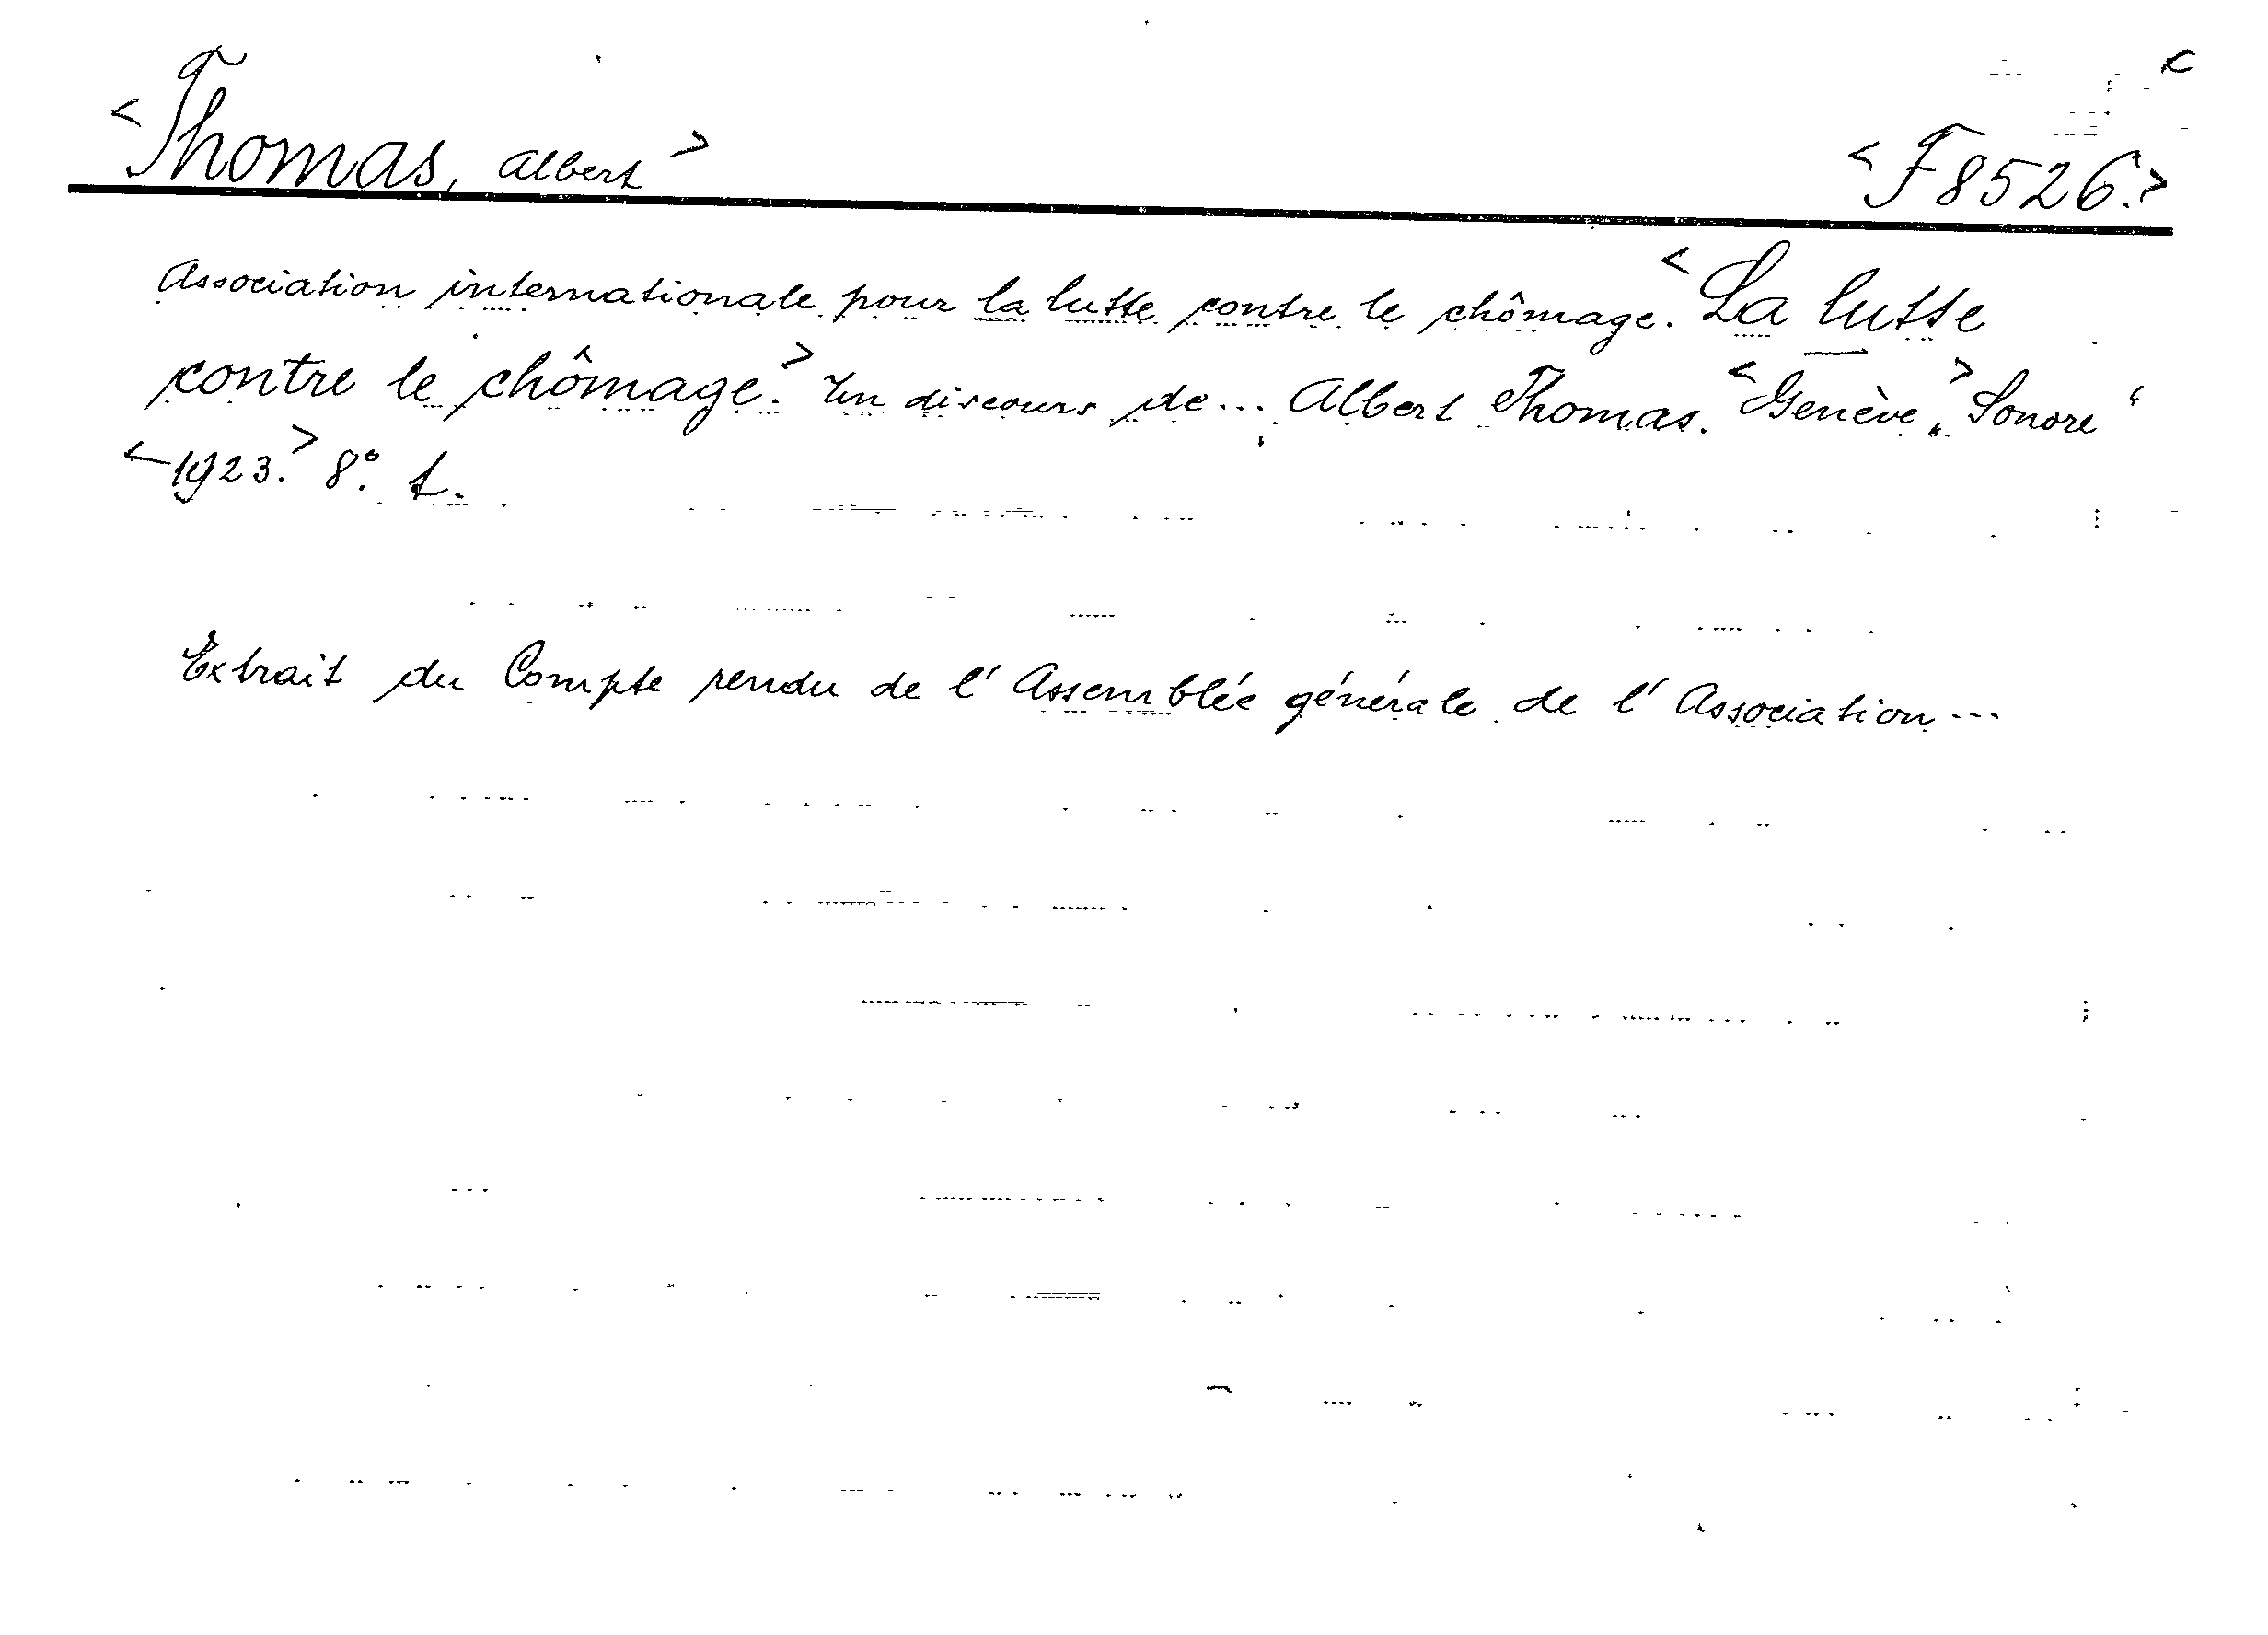 <Thomas, Albert> <F8526.>
Association internationale pour la lutte contre le chômage. <La lutte
contre le chômage.> Un discours de... Albert Thomas. <Genève,> „Sonore“
<1923.> 8°. t.
Extrait du Compte rendu de l'Assemblée générale de l'Association...